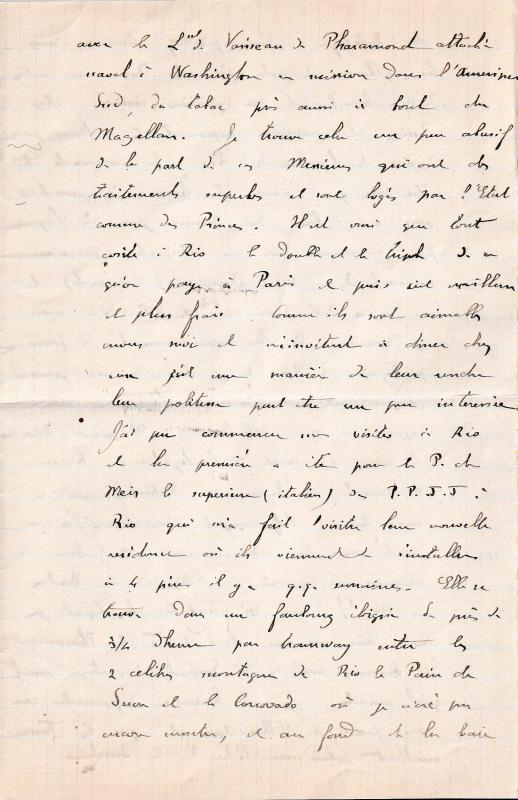 avec le Lnt de Vaisseau de Pharamond attaché
naval à Washington en mission dans l'Amérique
Sud, du tabac pris aussi à bord du
Magellan. Je trouve cela un peu abusif
de la part de ces Messieurs qui ont des
traitements superbes et sont logés par l'Etat
comme des Princes. Il est vrai que tout
coûte à Rio le double et le triple de ce
qu'on paye à Paris et puis c'est meilleur
et plus frais. Comme ils sont aimables
avec moi et m'invitent à diner chez
eux c'est une manière de leur rendre
leur politesse peut être un peu intéressée
J'ai pu commencer mes visites à Rio
et la première a été pour le P. de
Meis le supérieur (italien) des P.P. J.J. à
Rio qui m'a fait visiter leur nouvelle
résidence où ils viennent de s'installer
à 4 pères il y a q.q. semaines. Elle se
trouve dans un faubourg éloigné de près de
3/4 d'heure par tramway entre les
2 célèbres montagnes de Rio le Pain de
Sucre et le Corcovado où je n'ai pu
encore monter, et au fond de la baie